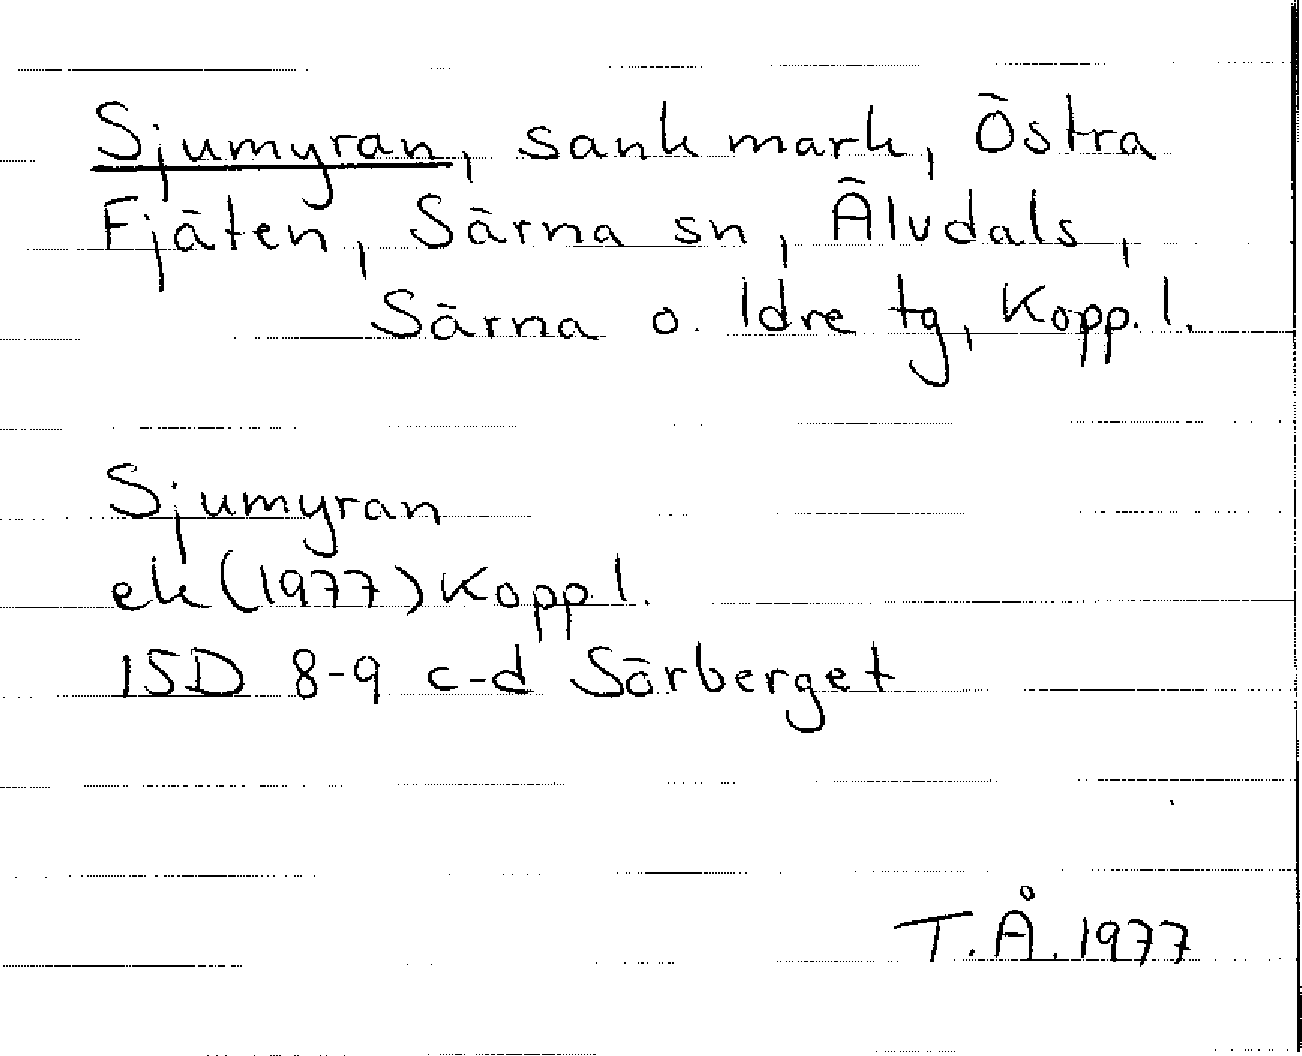 Sjumyran, sank mark, Östra
Fjäten, Särna sn, Älvdals,
Särna o. Idre tg, Kopp. l.
Sjumyran
ek (1977) Kopp l.
15D 8-9 c-d Sörberget
T.Å. 1977